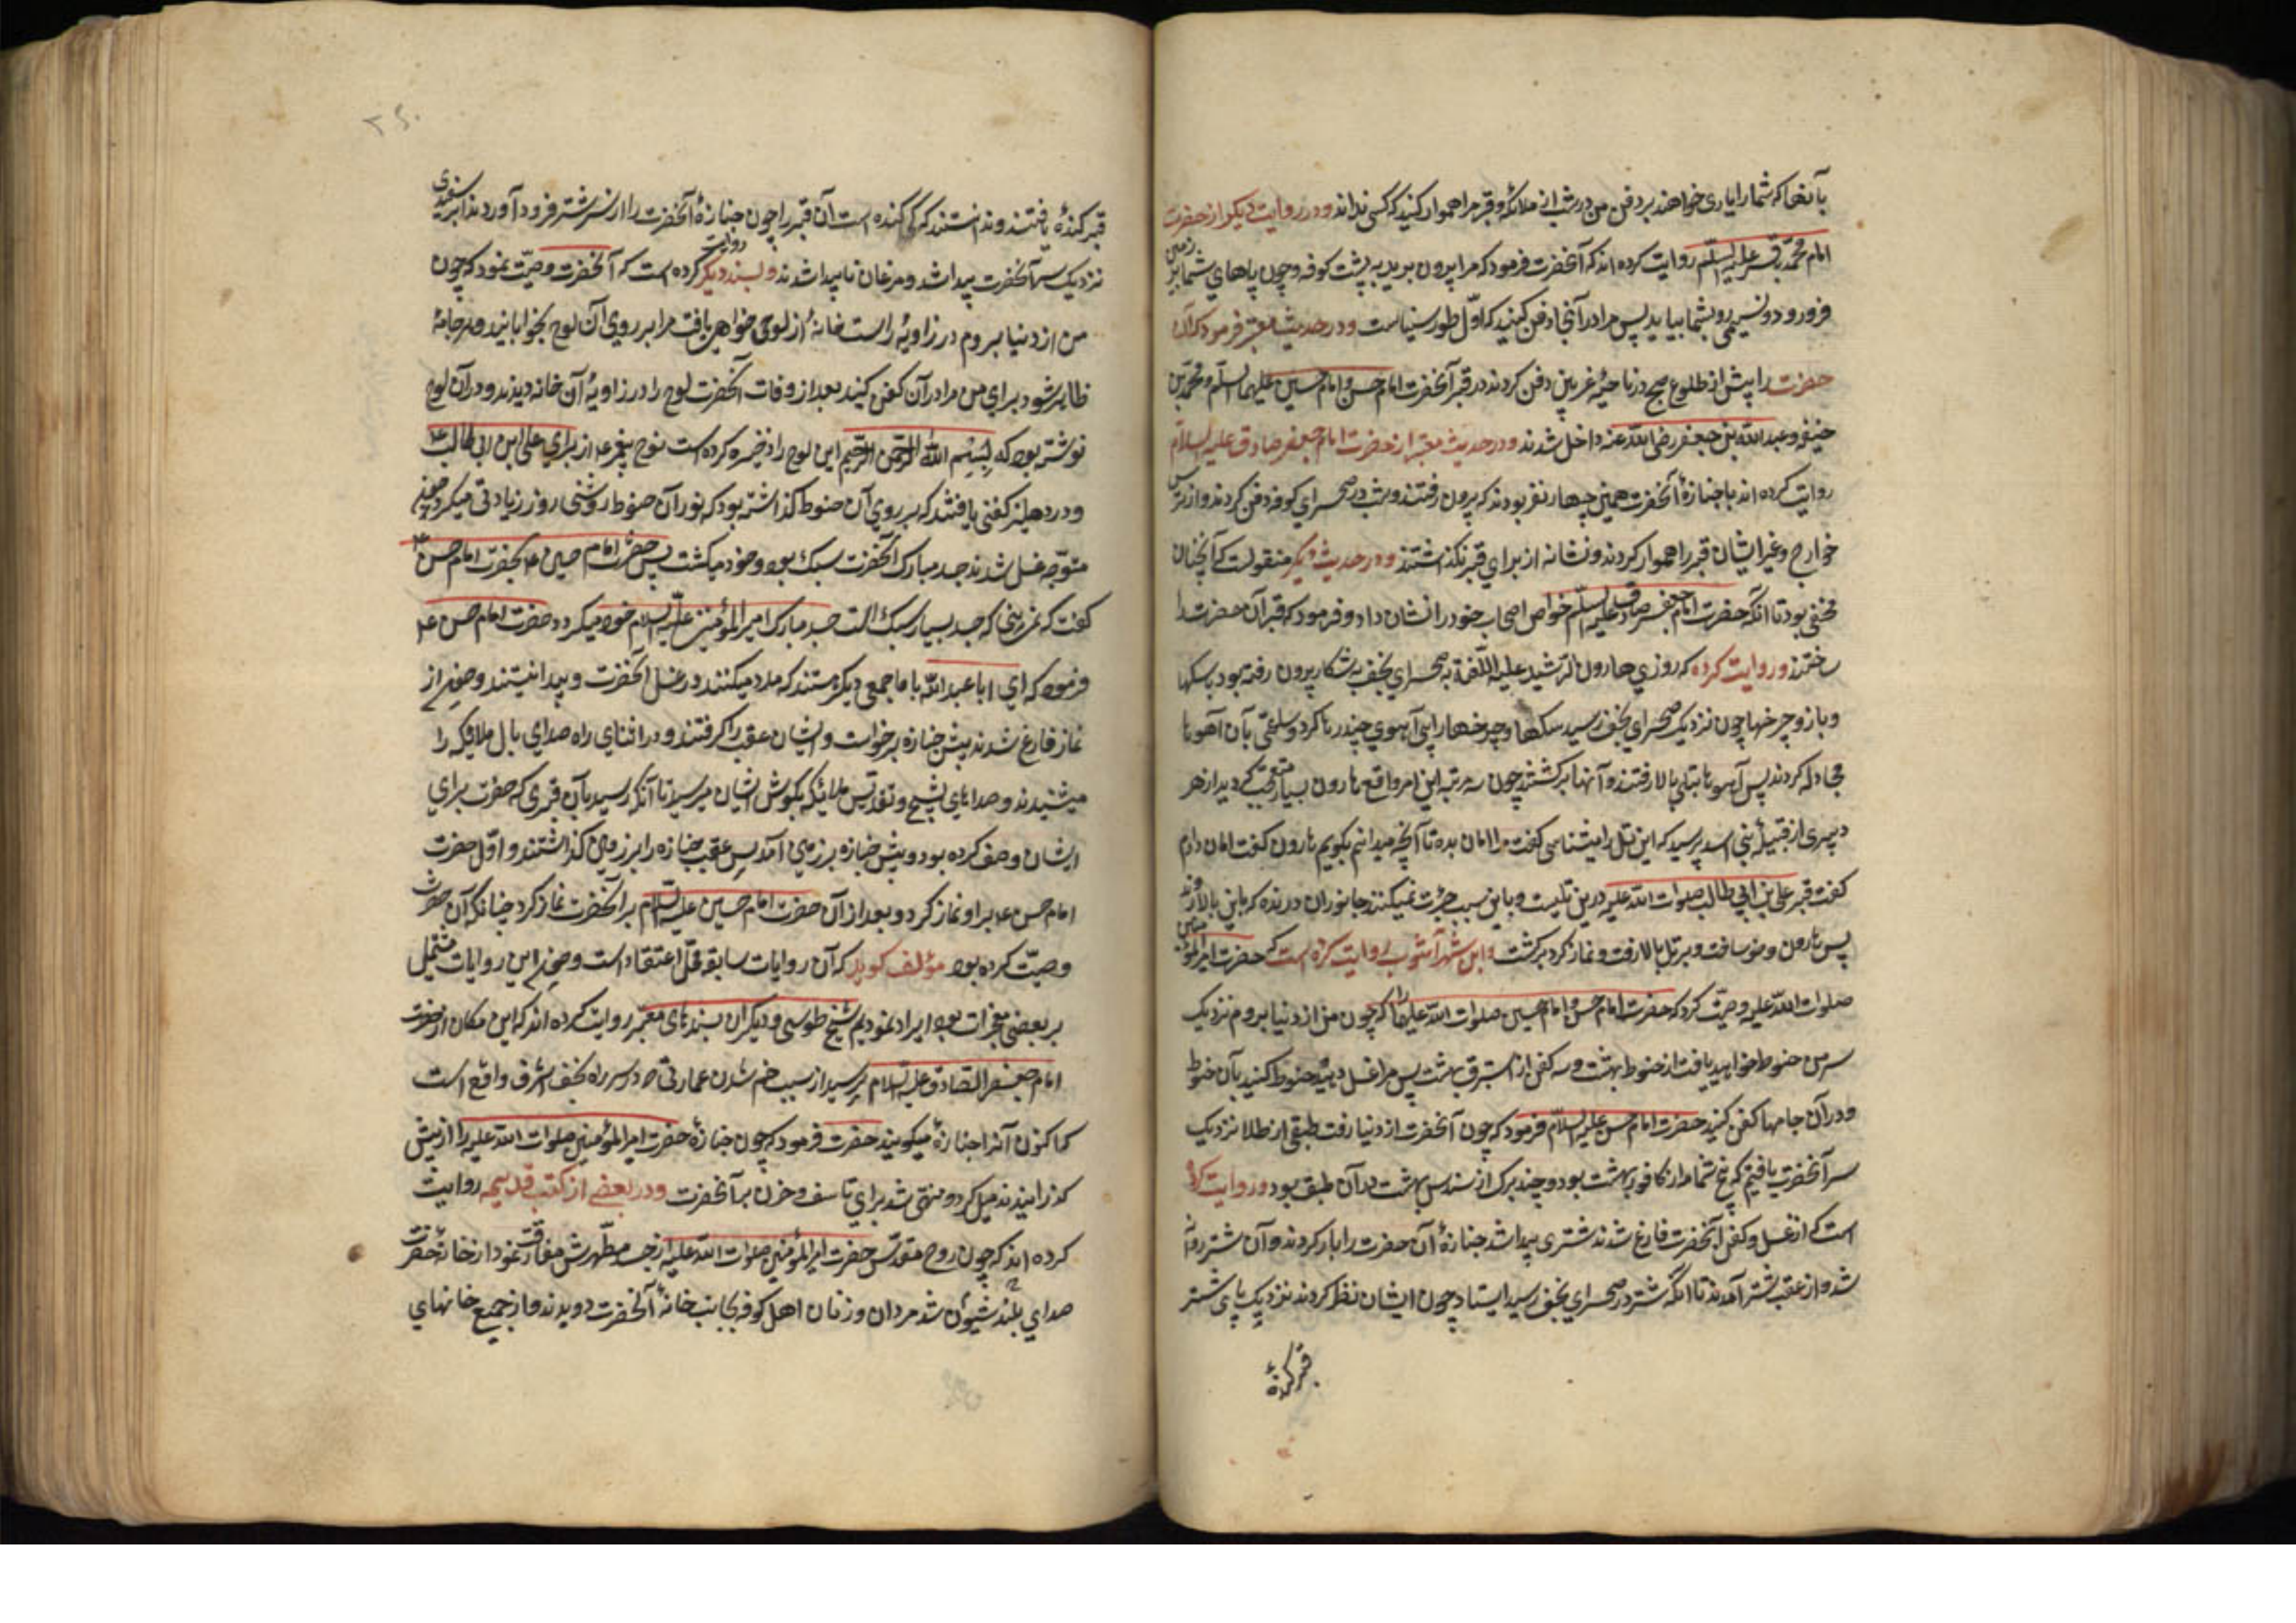 بآنها که شما را یاری خواهند بر دفن من در شب از ملائکه و قبر مرا هموار کنید که کسی نداند و در روایت دیگر از حضرت
امام محمد باقر علیه السلم روایت کرده اند که آنحضرت فرمود که مرا بیرون برید به پشت کوفه و چون پاهای شما بر زمین
فرو رود و نسیمی رو بشما بیاید پس مرا در آنجا دفن کنید که اول طور سیناست و در حدیث معتبر فرمود که آن
حضرت را پیش از طلوع صبح در ناحیۀ غریین دفن کردند در قبر آنحضرت امام حسن و امام حسین علیهما السلم و محمد بن
حنفیه و عبد الله بن جعفر رضی الله عنه داخل شدند و در حدیث معتبر از حضرت امام جعفر صادق علیه السلام
روایت کرده اند با جنازۀ آنحضرت همین چهار نفر بودند که بیرون رفتند و شب در صحرای کوفه دفن کردند و از ترس
خوارج و غیر ایشان قبر را هموار کردند و نشانه از برای قبر نگذاشتند و در حدیث دیگر منقولست که آنچنان
مخفی بود تا آنکه حضرت امام جعفر صادق علیه السلم خواص اصحاب خود را نشان داد و فرمود که قبر آن حضرت را
ساختند و روایت کرده که روزی هارون الرشید علیه اللعنة به صحرای نجف به شکار بیرون رفته بود سکها
و باز و چرخها چون نزدیک صحرای نجف رسید سکها و چرخها را پی آهوی چند رها کرد و ساعتی بآن آهوها
مجادله کردند پس آهوها بتلی بالا رفتند و آنها برگشتند چون سه مرتبه این امر واقع هارون بسیار متعجب گردید از هر
و پیری از قبیلۀ بنی اسد پرسید که این تل را میشناسی گفت مرا امان بده تا آنچه میدانم بگویم هارون گفت امان دادم
گفت قبر علی بن ابی طالب صلوات الله علیه درین تلست و باین سبب جرئت نمیکنند جانوران درنده که باین بالا روند
پس هارون وضو ساخت و بر تل بالا رفت و نماز کرد برگشت و ابن شهر آشوب روایت کرده است که حضرت امیر المؤمنین
صلوات الله علیه وصیت کرد که حضرت امام حسن و امام حسین صلوات الله علیهما را که چون من از دنیا بروم نزدیک
سر من حنوط خواهید یافت از حنوط بهشت و سه کفن از استبرق بهشت پس مرا غسل دهید و حنوط کنید بآن حنوط
و در آن جامها کفن کنید حضرت امام حسن علیه السلام فرمود که چون آنحضرت از دنیا رفت طبقی از طلا نزدیک
سر آنحضرت یافتیم که پنج شمامه از کافور بهشت بود و چند برک از سندس بهشت در آن طبق بود و روایت کرده
است که از غسل و کفن آنحضرت فارغ شدند شتری پیدا شد جنازۀ آن حضرت را بار کردند و آن شتر روانه
شد و از عقب شتر آمدند تا آنکه شتر در صحرای نجف رسید ایستاد چون ایشان نظر کردند نزدیک پای شتر
قبر کندۀ
۲۶۰
قبر کندۀ یافتند و ندانستند که کی کنده است آن قبر را چون جنازۀ آنحضرت را از سر شتر فرود آوردند ابر سفیدی
نزدیک سر آنحضرت پیدا شد و مرغان ناپیدا شدند و بسند دیگر روایت کرده است که آنحضرت وصیت نمود که چون
من از دنیا بروم در زاویۀ راست خانه از لوحی خواهید یافت مرا بر روی آن لوح بخوابانید و هر جامۀ
ظاهر شود برای من مرا در آن کفن کنید بعد از وفات آنحضرت لوح را در زاویۀ آن خانه دیدند و در آن لوح
نوشته بود که بسم الله الرحمن الرحیم این لوح را ذخیره کرده است نوح پیغمبر ع از برای علی ابن ابی طالب ع
و در دهلیز کفنی یافتند که بر روی آن حنوط گذاشته بود که نور آن حنوط بر روشنی روز زیادتی میکرد چون
متوجه غسل شدند جسد مبارک آنحضرت سبک بود و خود میگشت پس حضرت امام حسین ع بحضرت امام حسن ع
گفت که نمی بینی که جسد بسیار سبک است جسد مبارک امیر المؤمنین علیه السلام خود میگردد حضرت امام حسن ع
فرمود که ای ابا عبد الله با ما جمعی دیگر هستند که مدد میکنند در غسل آنحضرت و پیدا نیستند و چون از
نماز فارغ شدند پیش جنازه برخواست و ایشان عقب را گرفتند و در اثنای راه صدای بال ملائکه را
میشنیدند و صداهای تسبیح و تقدیس ملائکه بگوش ایشان میرسید تا آنکه رسید بآن قبری که حضرت برای
ایشان وصف کرده بود و پیش جنازه بر زمین آمد پس عقب جنازه را بر زمین گذاشتند و اول حضرت
امام حسن ع بر او نماز کرد و بعد از آن حضرت امام حسین علیه السلام بر آنحضرت نماز کرد چنانکه آن حضرت
وصیت کرده بود مؤلف گوید که آن روایات سابقه محل اعتقاد است و چون این روایات مشتمل
بر بعضی معجزات بود ایراد نمودیم شیخ طوسی و دیگران بسندهای معتبر روایت کرده اند که این مکان از حضرت
امام جعفر الصادق علیه السلام پرسید از سبب خم شدن عمارتی که در سر راه نجف اشرف واقع است
که اکنون آنرا جنازۀ میگویند حضرت فرمود که چون جنازۀ حضرت امیر المؤمنین صلوات الله علیه را از پیش
گذرانیدند میل کرد و منحنی شد برای تاسف و حزن بر آنحضرت و در بعضی از کتب قدیمه روایت
کرده اند که چون روح مقدس حضرت امیر المؤمنین صلوات الله علیه از جسد مطهرش مفارقت نمود از خانۀ حضرت
صدای بلند شیون شد مردان و زنان اهل کوفه بجانب خانۀ آنحضرت دویدند و از جمیع خانهای